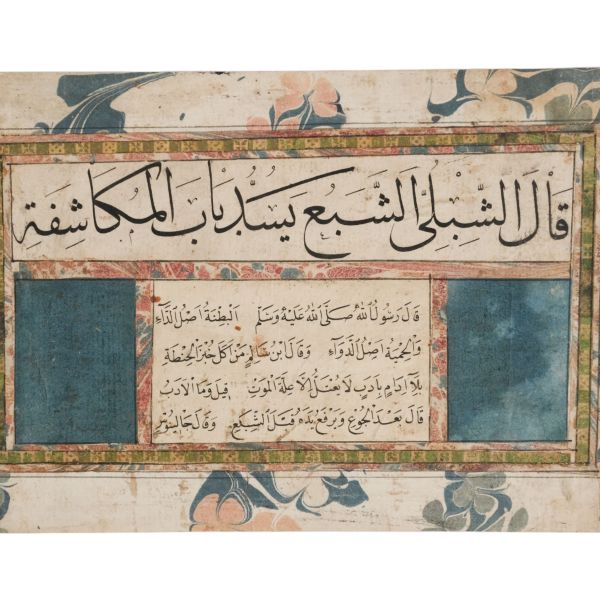 قَالَ الشِّبْلِىُّ الشَّبَعُ يَسُدُّ بَابَ الْمُكَاشَفَةِ
قَالَ رَسُولُ اللهِ صَلَّى اللهُ عَلَيْهِ وَسَلَّمَ اَلْبِطْنَةُ اَصْلُ الدَّاءِ
وَالْحِمْيَةُ اَصْلُ الدَّوَاءِ وَقَالَ ابْنُ سَالِمٍ مَنْ اَكَلَ خُبْزَ الْحِنْطَةِ
بِلَا اِدَامٍ بِاَدَبٍ لَا يَعْتَلُّ اِلَّا عِلَّةَ الْمَوْتِ قِيلَ وَمَا الْاَدَبُ
قَالَ بَعْدَ الْجُوعِ وَيَرْفَعُ يَدَهُ قَبْلَ الشَّبَعِ وَقَالَ جَالِينُوسُ